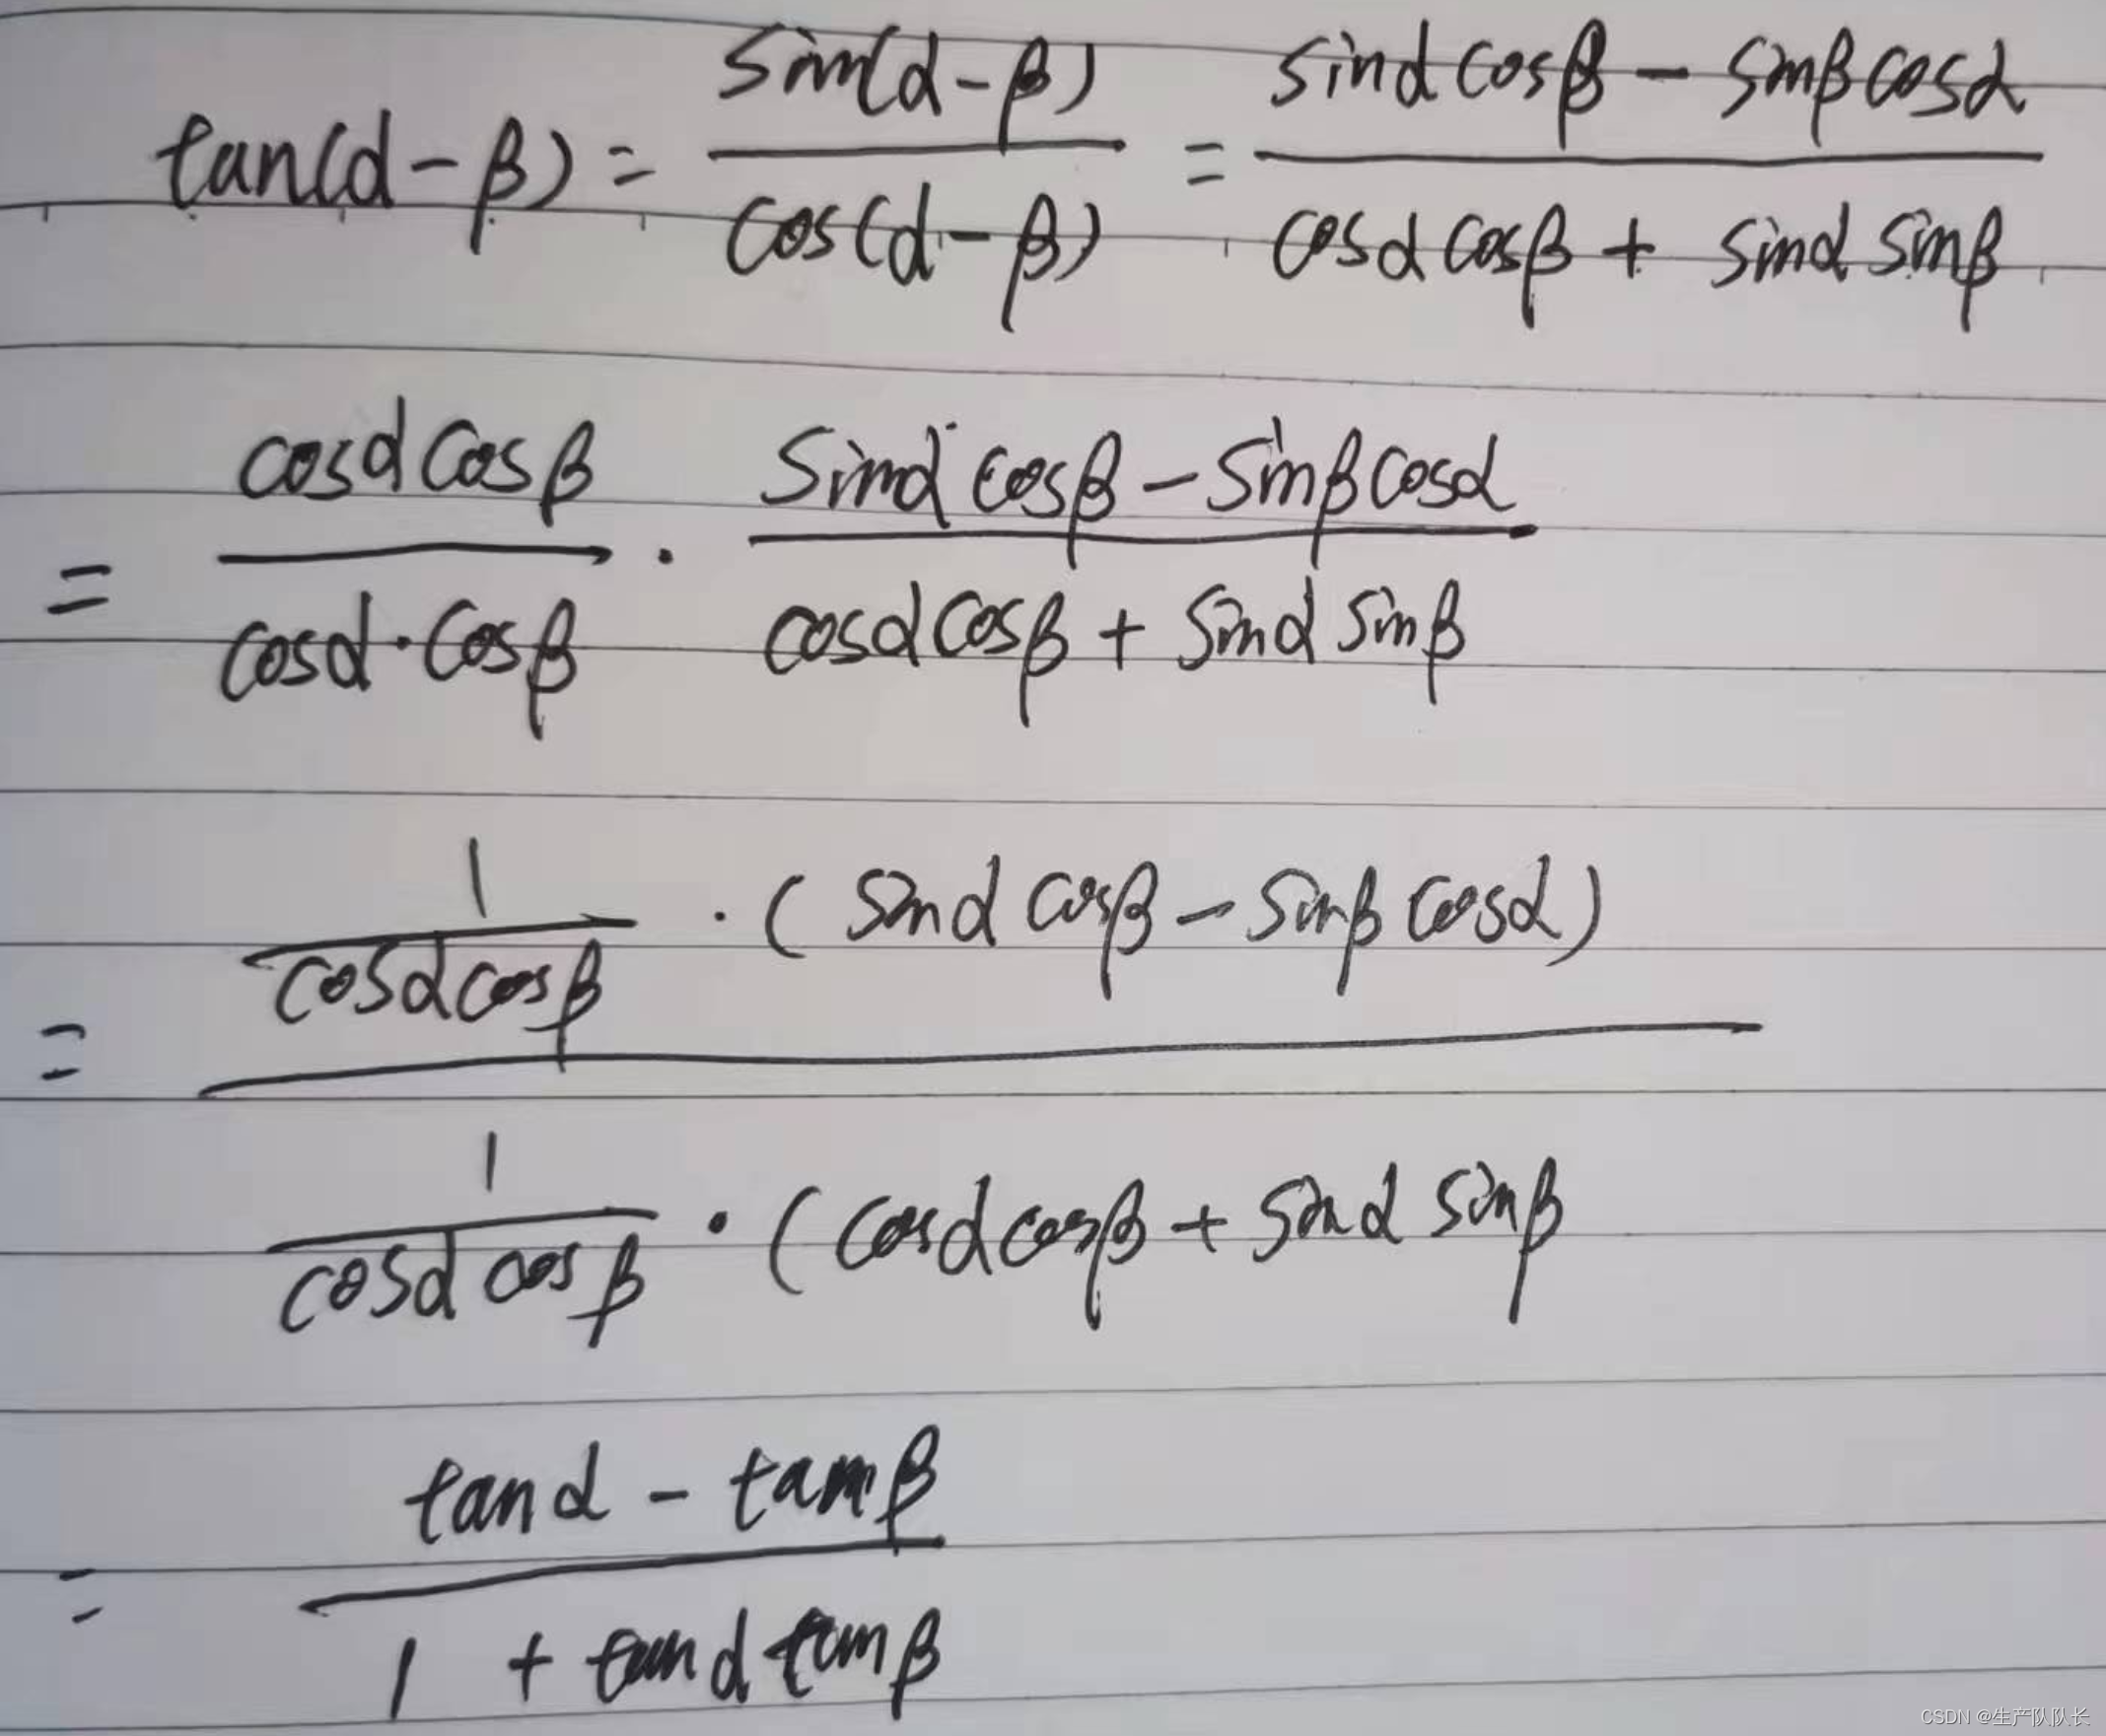 tan(α-β) = \frac{sin(α-β)}{cos(α-β)} = \frac{sinα cosβ - sinβ cosα}{cosα cosβ + sinα sinβ}
= \frac{cosα cosβ}{cosα·cosβ} · \frac{sinα cosβ - sinβ cosα}{cosα cosβ + sinα sinβ}
= \frac{\frac{1}{cosα cosβ} · (sinα cosβ - sinβ cosα)}{\frac{1}{cosα cosβ} · (cosα cosβ + sinα sinβ}
= \frac{tanα - tanβ}{1 + tanα tanβ}
CSDN @生产队队长